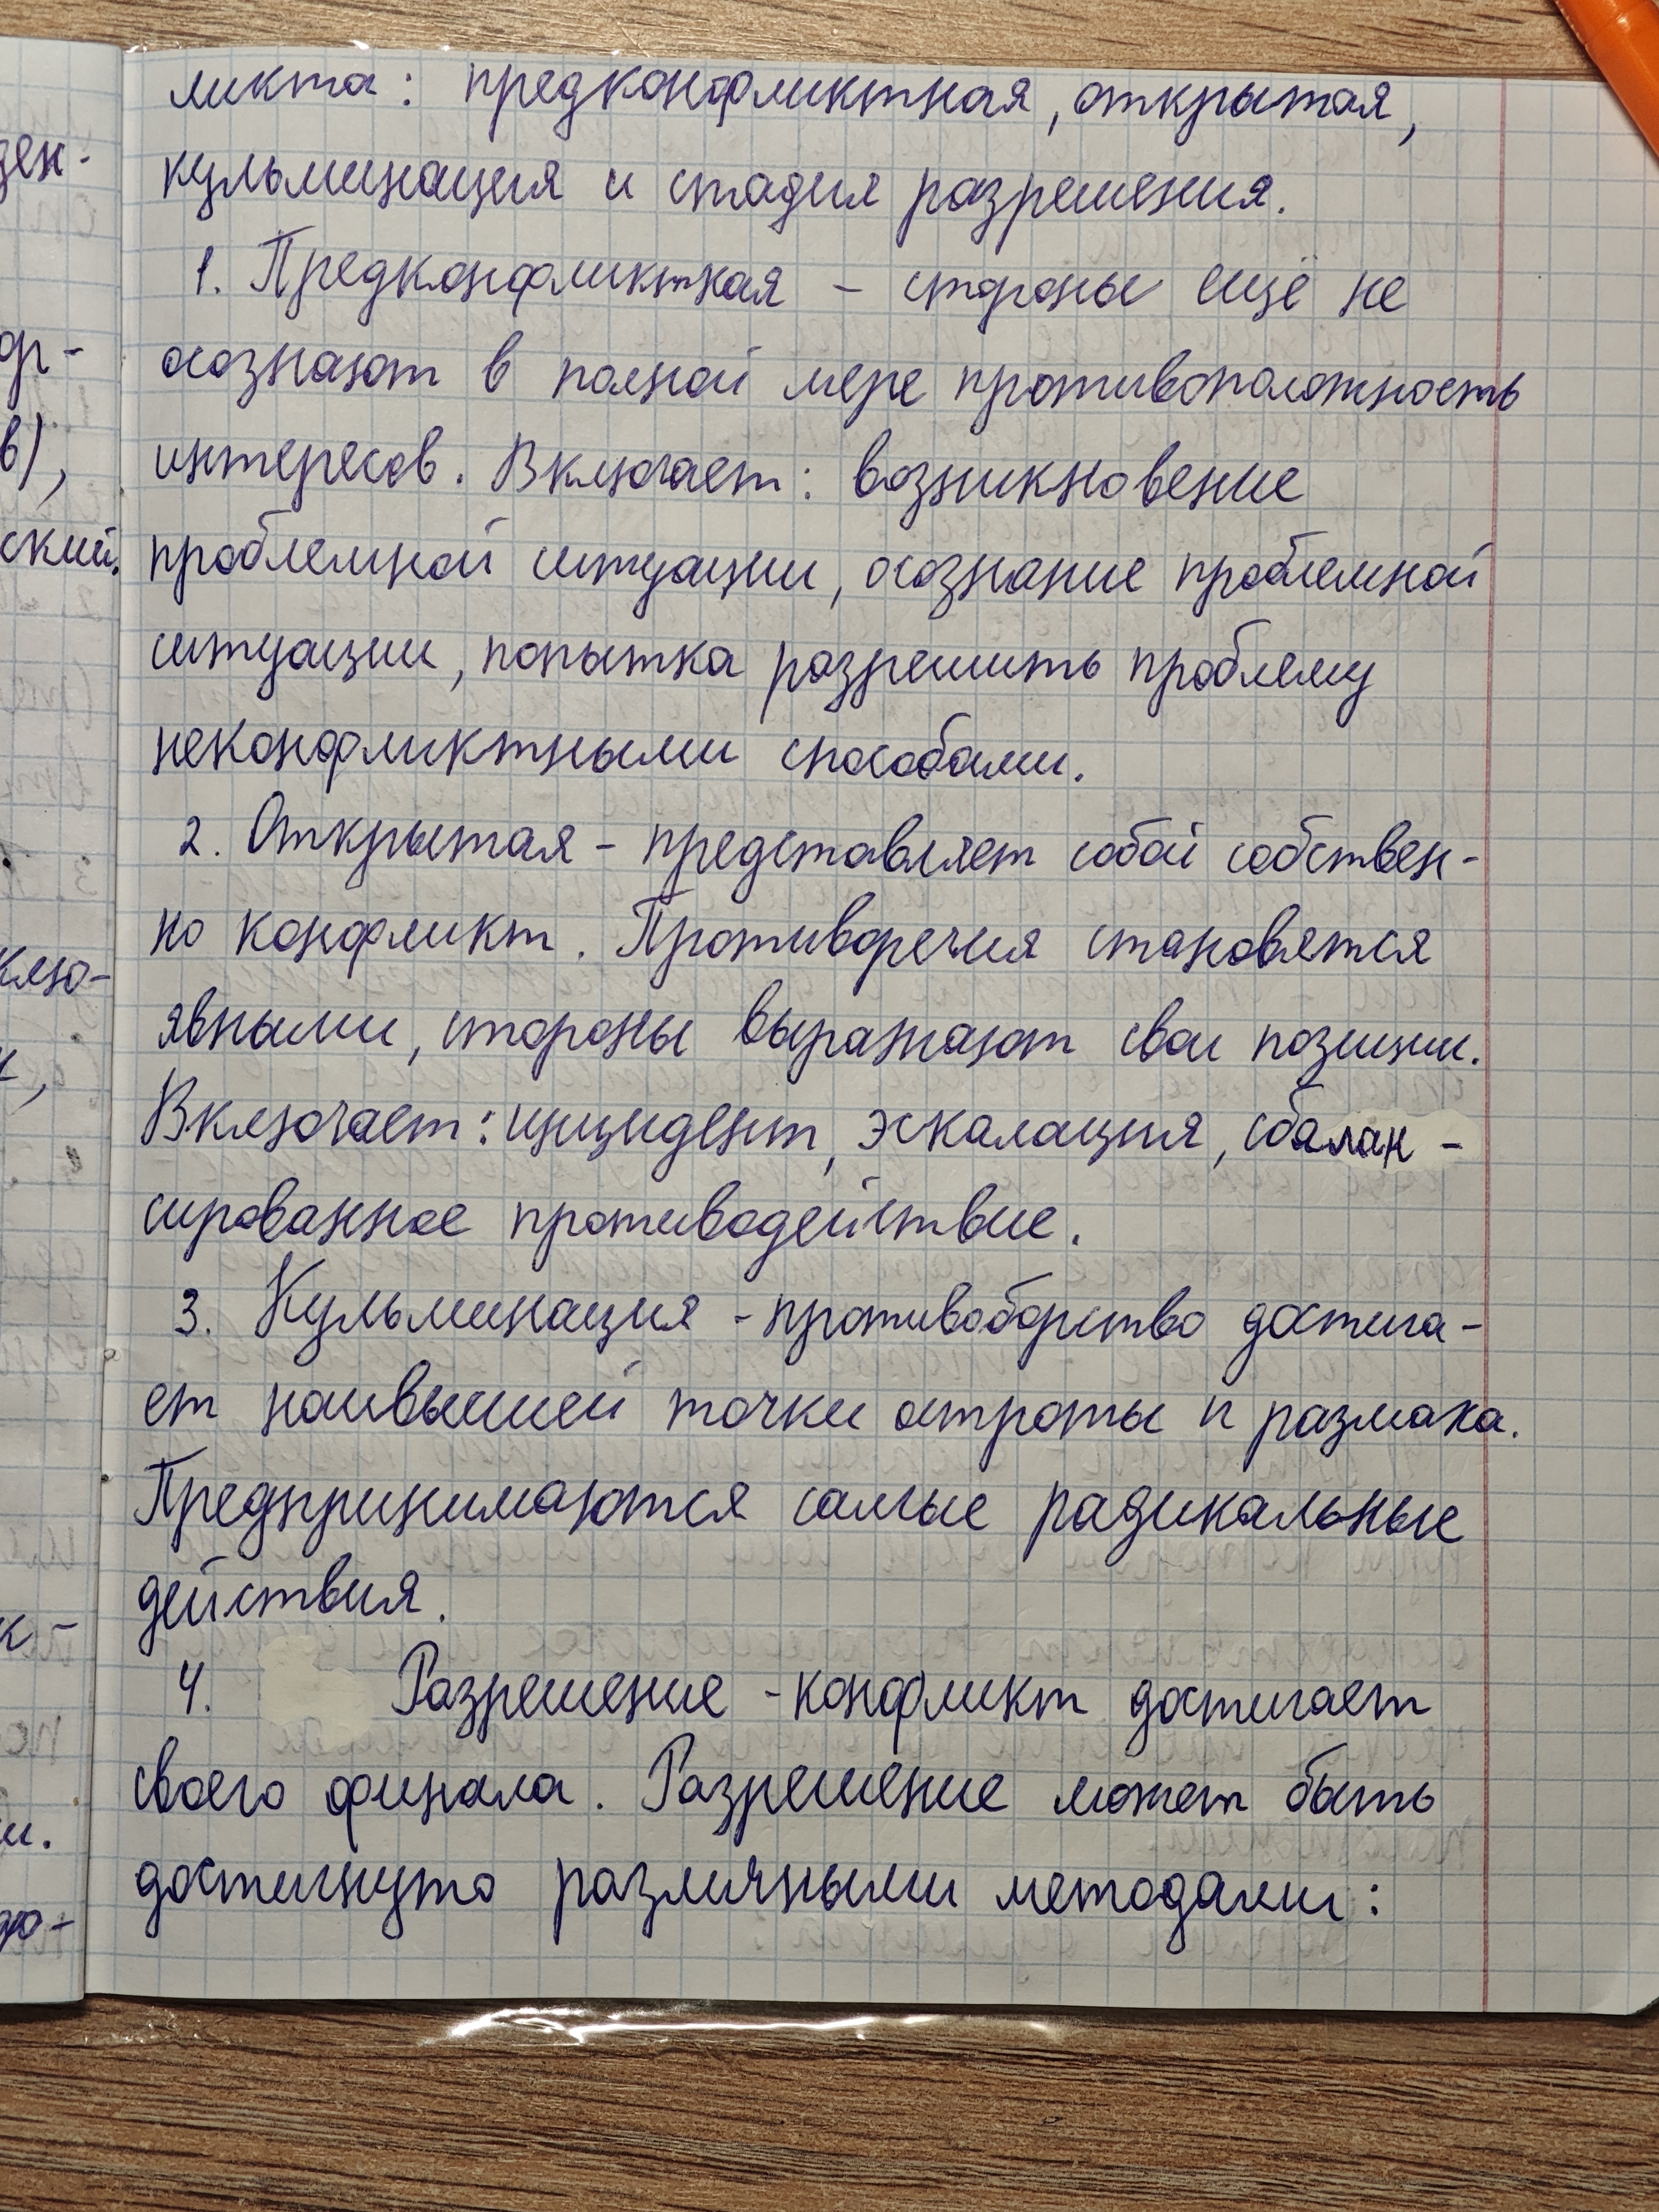 ликта: предконфликтная, открытая,
кульминация и стадия разрешения.
1. Предконфликтная – стороны ещё не
осознают в полной мере противоположность
интересов. Включает: возникновение
проблемной ситуации, осознание проблемной
ситуации, попытка разрешить проблему
неконфликтными способами.
2. Открытая – представляет собой собствен-
но конфликт. Противоречия становятся
явными, стороны выражают свои позиции.
Включает: инцидент, эскалация, сбалан-
сированное противодействие.
3. Кульминация - противоборство достига-
ет наивысшей точки остроты и размаха.
Предпринимаются самые радикальные
действия.
4. Разрешение - конфликт достигает
своего финала. Разрешение может быть
достигнуто различными методами: